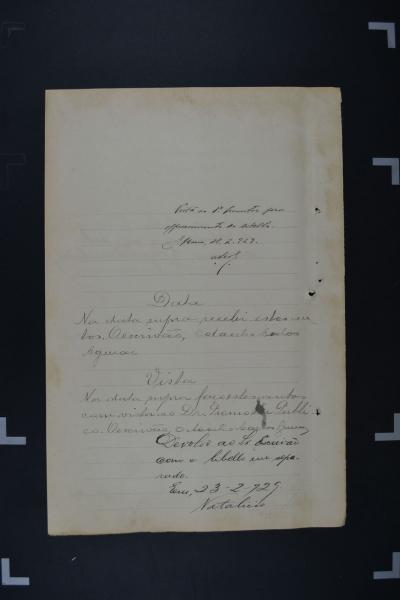 Vista ao Dr. Promotor para
offerecimento do libello.
22.2.929.
Data
Na data supra, recebi estes au
tos. O escrivão,
Aguiar
Vista
Na data supra faço estes autos
com vista ao Dr. Promotor Publi
co. O escrivão,
Devolvo ao Sr. Escrivão
com o libello em sepa-
rado.
Em, 23-2-929
Natalicio